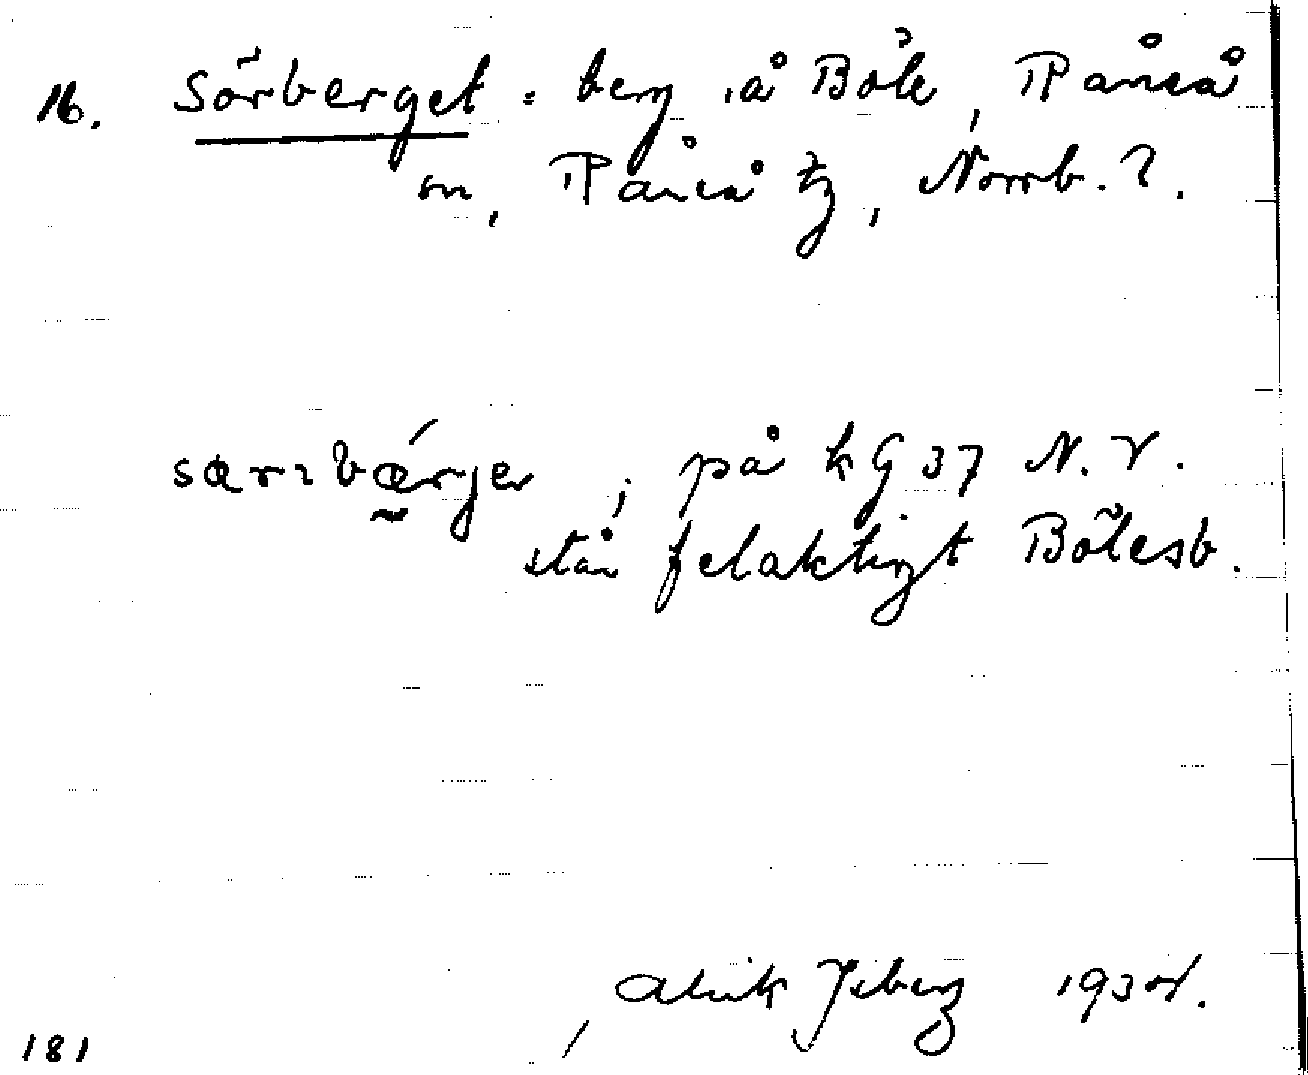 16. Sörberget: berg å Böle, Råneå
sn, Råneå tg, Norrb. l.
særɩbærjeɴ, på k G 37 N.V.
står felaktigt Bölesb.
1934.
181